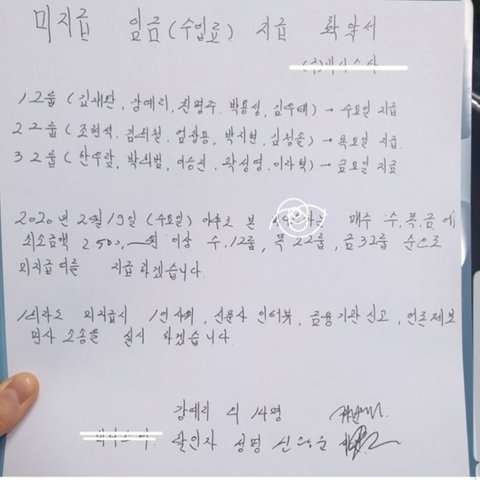 미지급 임금(수업료) 지급 확약서
1그룹(김새탄, 강예리, 진평주, 박용성, 김우태) → 수요일 지급
2그룹(조현석, 김희철, 엄광용, 박시현, 김정솔) → 목요일 지급
3그룹(한우람, 박식범, 이승진, 곽성영, 이사혁) → 금요일 지급
2020년 2월 19일 (수요일) 이후로 본 매주 수.목.금에
최소금액 2,500, 원 이상 수,1그룹, 목 2그룹, 금 3그룹 순으로
미지급여를 지급하겠습니다.
1회라도 미지급시 1인시위, 신문사 인터뷰, 금융기관 신고, 언론제보
민사 소송을 실시 하겠습니다.
강예리 외 14명
확인자 성명